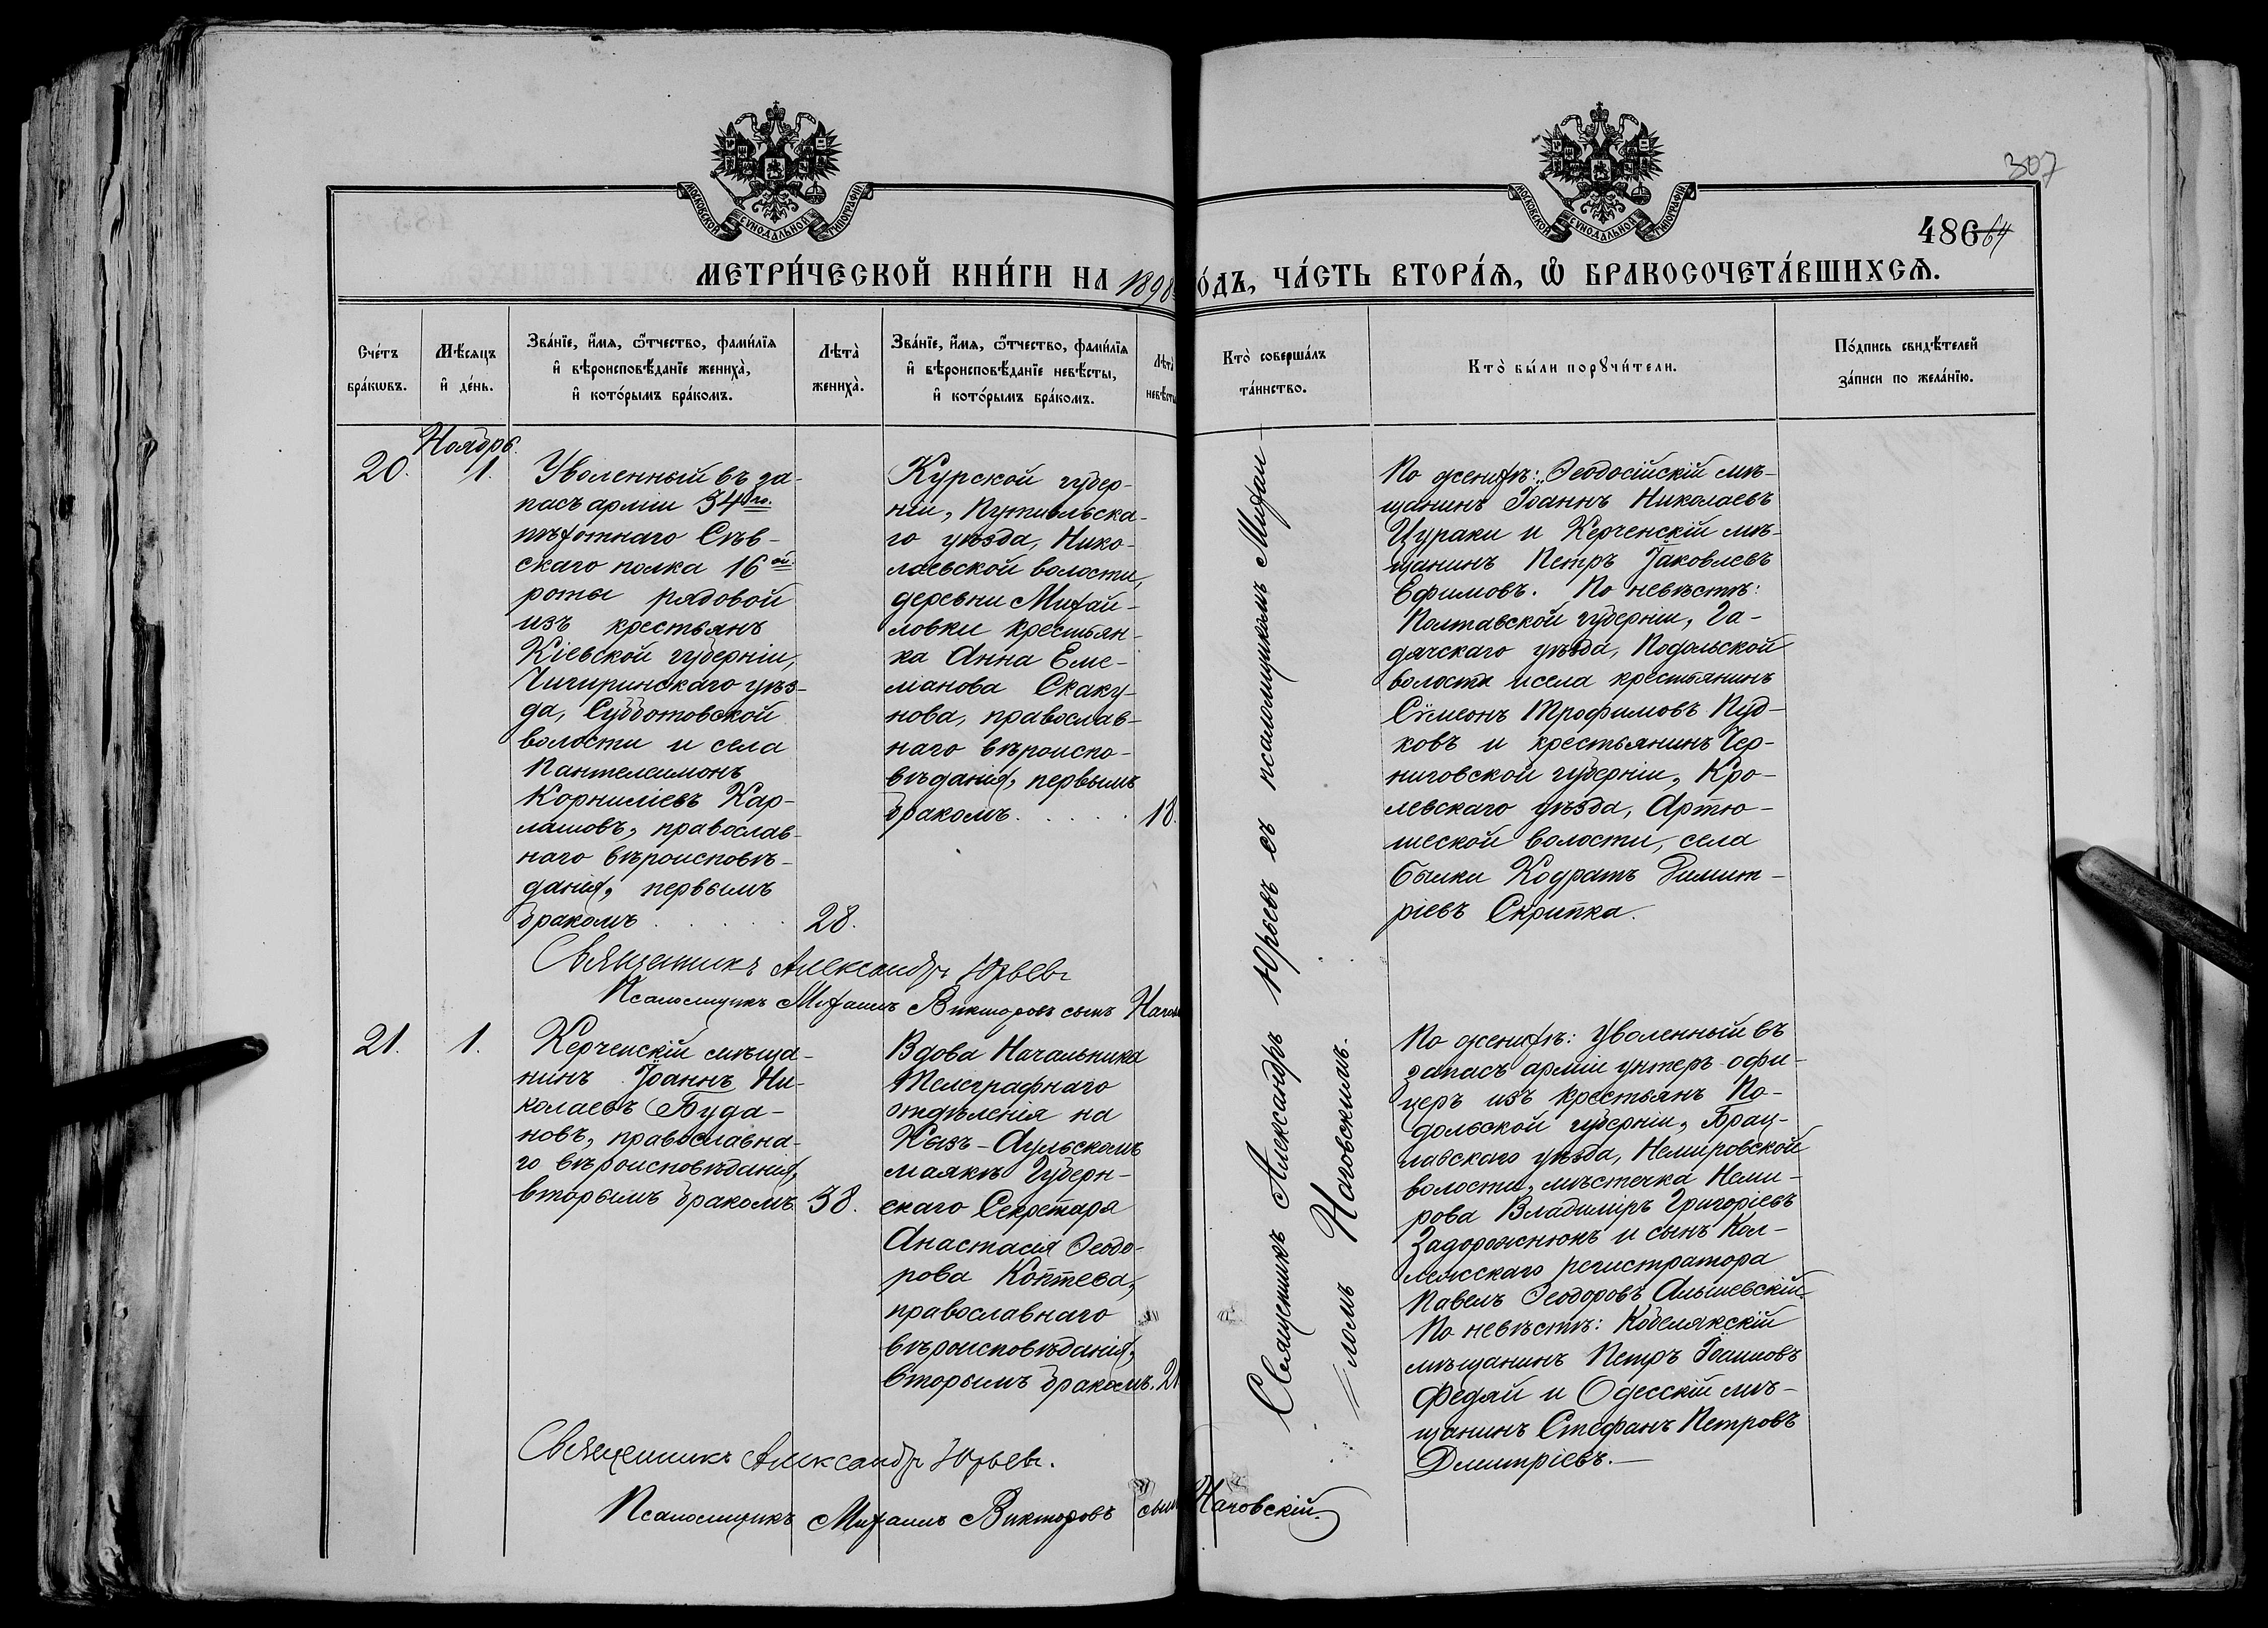 307
486 64
МОСКОВСКОЙ СѴНОДАЛЬНОЙ ТИПОГРАФІИ
МОСКОВСКОЙ СѴНОДАЛЬНОЙ ТИПОГРАФІИ
МЕТРИ́ЧЕСКОЙ КНИ́ГИ НА 1898 ГО́ДЪ, ЧА́СТЬ ВТОРА́Ѧ, Ѽ БРАКОСОЧЕТА́ВШИХСѦ.
Сче́тъ бра́кѡвъ.
Мѣ́сяцъ и҆ де́нь.
Зва́нїе, и҆́мѧ, ѻ҆́тчество, фами́лїѧ
и҆ вѣроисповѣ́данїе жениха̀,
и҆ кото́рымъ бра́комъ.
Лѣта̀ жениха̀.
Зва́нїе, и҆́мѧ, ѻ҆́тчество, фами́лїѧ
и҆ вѣроисповѣ́данїе невѣ́сты,
и҆ кото́рымъ бра́комъ.
Лѣта̀ невѣ́сты
Кто̀ соверша́лъ
та́инство.
Кто̀ бы́ли порꙋчи́тели.
По́дпись свидѣ́телей
за́писи по жела́нїю.
Ноябрь.
20.
1.
Уволенный въ за-
пасъ арміи 34го
пѣхотнаго Сѣв-
скаго полка 16ой
роты рядовой
изъ крестьянъ
Кіевской губерніи,
Чигиринскаго уѣз-
да, Субботовской
волости и села
Пантелеимонъ
Корниліевъ Кар-
лашовъ, православ-
наго вѣроисповѣ-
данія, первымъ
бракомъ
28.
Курской губер-
ніи, Путивльска-
го уѣзда, Нико-
лаевской волости,
деревни Михай-
ловки крестьян-
ка Анна Еме-
ліанова Скаку-
нова, православ-
наго вѣроиспо-
вѣданія, первымъ
бракомъ.
18.
Священникъ Александръ Юрьевъ съ псаломщикомъ Михаи-
ломъ Наговскимъ.
По женихѣ: Ѳеодосійскій мѣ-
щанинъ Іоаннъ Николаевъ
Цураки и Керченскій мѣ-
щанинъ Петръ Іаковлевъ
Ефимовъ. По невѣстѣ:
Полтавской губерніи, Га-
дячскаго уѣзда, Подольской
волости и села крестьянинъ
Сѵмеонъ Трофимовъ Пуд-
ковъ и крестьянинъ Чер-
ниговской губерніи, Кро-
левскаго уѣзда, Артю-
шской волости, села
Быики Кодратъ Димит-
ріевъ Скрипка.
Священникъ Александръ Юрьевъ
Псаломщикъ Михаилъ Викторовъ сынъ Наговскій
21.
1.
Керченскій мѣща-
нинъ Іоаннъ Ни-
колаевъ Буда-
новъ, православна-
го вѣроисповѣданія,
вторымъ бракомъ
38.
Вдова Начальника
Телеграфнаго
отдѣленія на
Кызъ-Аульскомъ
маякѣ Губерн-
скаго Секретаря
Анастасія Ѳеодо-
рова Коптева,
православнаго
вѣроисповѣданія,
вторымъ бракомъ.
По женихѣ: Уволенный въ
запасъ арміи унтеръ-офи-
церъ изъ крестьянъ По-
дольской губерніи, Брац-
лавскаго уѣзда, Немировской
волости, мѣстечка Неми-
рова Владиміръ Григоріевъ
Задорожнюкъ и сынъ Кол-
лежскаго регистратора
Павелъ Ѳеодоровъ Альшевскій.
По невѣстѣ: Кобелякскій
мѣщанинъ Петръ Іоанновъ
Федяй и Одесскій мѣ-
щанинъ Стефанъ Петровъ
Дмитріевъ.
Священникъ Александръ Юрьевъ.
Псаломщикъ Михаилъ Викторовъ сынъ Наговскій.